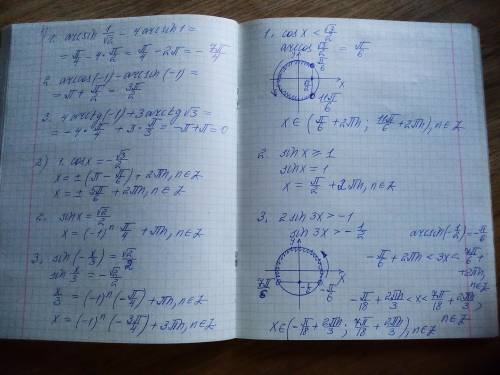 1) 1. arcsin 1/√2 - 4 arcsin 1 =
= π/4 - 4·π/2 = π/4 - 2π = - 7π/4
2 arccos(-1) - arcsin(-1) =
= π + π/2 = 3π/2
3. 4 arctg(-1) + 3 arctg √3 =
= -4·π/4 + 3·π/3 = -π+π = 0
2) 1. cos x = -√3/2
x = ±(π - π/6) + 2πn, n∈Z
x = ± 5π/6 + 2πn, n∈Z
2. sin x = √2/2
x = (-1)ⁿ π/4 + πn, n∈Z
3, sin(-x/3) = √2/2
sin x/3 = -√2/2
x/3 = (-1)ⁿ(-π/4) + πn, n∈Z
x = (-1)ⁿ(-3π/4) + 3πn, n∈Z
1. cos x < √3/2
arccos √3/2 = π/6
π/6
x
11π/6
x∈(π/6 + 2πn ; 11π/6 + 2πn), n∈Z
2. sin x ≥ 1
sin x = 1
x = π/2 + 2πn, n∈Z
3, 2 sin 3x > -1
sin 3x > -1/2
arcsin(-1/2) = -π/6
-π/6 + 2πn < 3x < 7π/6 + 2πn,
n∈Z
7π/6
-π/6
-π/18 + 2πn/3 < x < 7π/18 + 2πn/3,
n∈Z
x∈(-π/18 + 2πn/3 ; 7π/18 + 2πn/3), n∈Z